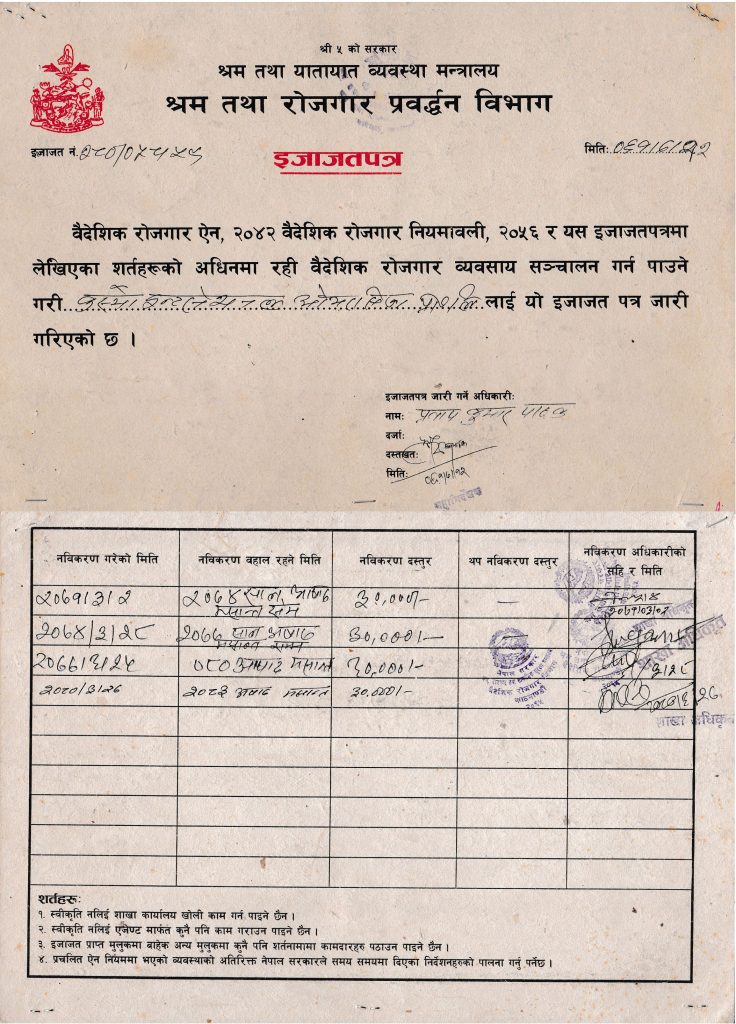 श्री ५ को सरकार
श्रम तथा यातायात व्यवस्था मन्त्रालय
श्रम तथा रोजगार प्रवर्द्धन विभाग
इजाजत नं.
मितिः ०६१।६।१२
इजाजतपत्र
वैदेशिक रोजगार ऐन, २०४२ वैदेशिक रोजगार नियमावली, २०५६ र यस इजाजतपत्रमा
लेखिएका शर्तहरूको अधिनमा रही वैदेशिक रोजगार व्यवसाय सञ्चालन गर्न पाउने
गरी लाई यो इजाजत पत्र जारी
गरिएको छ ।
इजाजतपत्र जारी गर्ने अधिकारीः
नामः कुमार पाठक
दर्जाः
दस्तखतः
मितिः ०६१।६।१२
नविकरण गरेको मिति नविकरण बहाल रहने मिति नविकरण दस्तुर थप नविकरण दस्तुर नविकरण अधिकारीको
सहि र मिति
२०७१।३।२ २०७४ साल ३०,०००/- —
मसान्त सम्म
२०७४/३/२८ २०७७ साल अषाढ ३०,०००/- —
मसान्त सम्म
२०७७।३।२५ ०८० आषाढ मसान्त ३०,०००/-
२०८०/३/२६ २०८३ अषाढ मसान्त ३०,०००/-
नेपाल सरकार
वैदेशिक रोजगार
शाखा अधिकृत
शर्तहरूः
१. स्वीकृति नलिई शाखा कार्यालय खोली काम गर्न पाइने छैन ।
२. स्वीकृति नलिई एजेण्ट मार्फत कुनै पनि काम गराउन पाइने छैन ।
३. इजाजत प्राप्त मुलुकमा बाहेक अन्य मुलुकमा कुनै पनि शर्तनामामा कामदारहरु पठाउन पाइने छैन ।
४. प्रचलित ऐन नियममा भएको व्यवस्थाको अतिरिक्त नेपाल सरकारले समय समयमा दिएका निर्देशनहरुको पालना गर्नु पर्नेछ ।